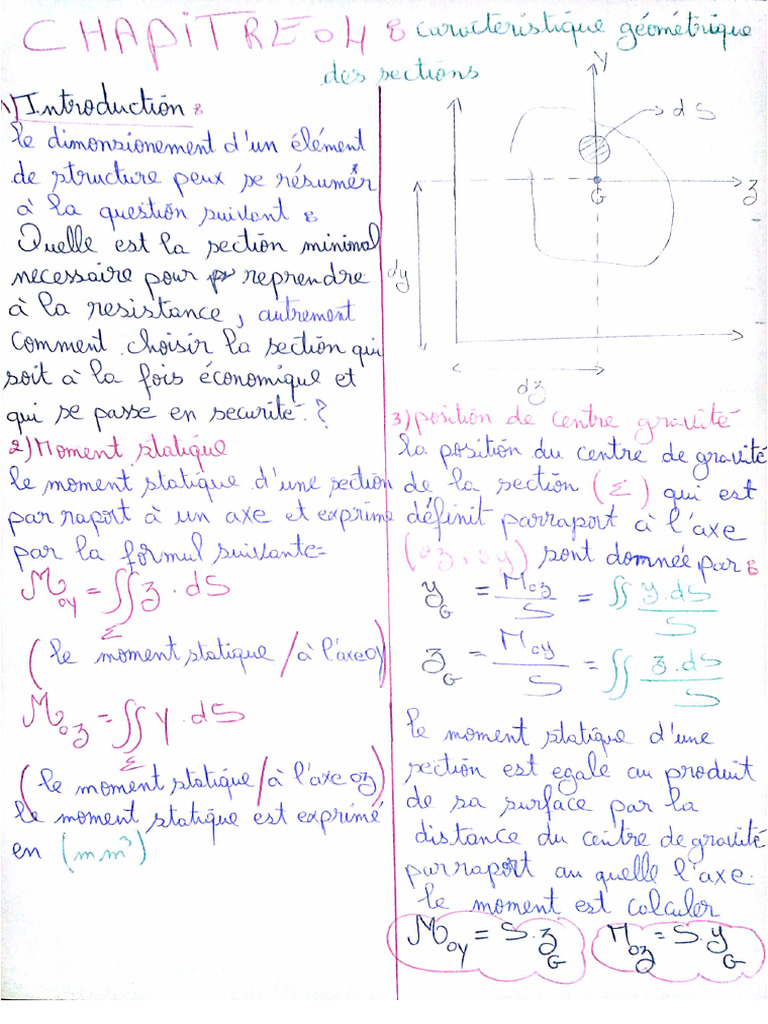 CHAPITRE 04 : caractéristique géométrique
des sections
1) Introduction :
le dimonsionement d'un élément
de structure peux se résumér
à la question suivant :
Quelle est la section minimal
necessaire pour reprendre
à la resistance, autrement
Comment choisir la section qui
soit à la fois économique et
qui se passe en securité ?
2) Moment statique
le moment statique d'une section
par raport à un axe et exprime
par la formul suivante =
M_oy = ∬_Σ z . ds
(le moment statique / à l'axe oy)
M_oz = ∬_Σ y . ds
(le moment statique / à l'axe oz)
le moment statique est exprimé
en (mm³)
y
ds
z
G
dy
dz
3) position de centre gravité
la position du centre de gravité
de la section (Σ) qui est
définit parraport à l'axe
(oz, oy) sont domnée par :
y_G = M_oz / S = ∬ y.ds / S
z_G = M_oy / S = ∬ z.ds / S
le moment statique d'une
section est egale au produit
de sa surface par la
distance du centre de gravité
parraport au quelle l'axe.
le moment est calculer
M_oy = S . z_G
M_oz = S . y_G